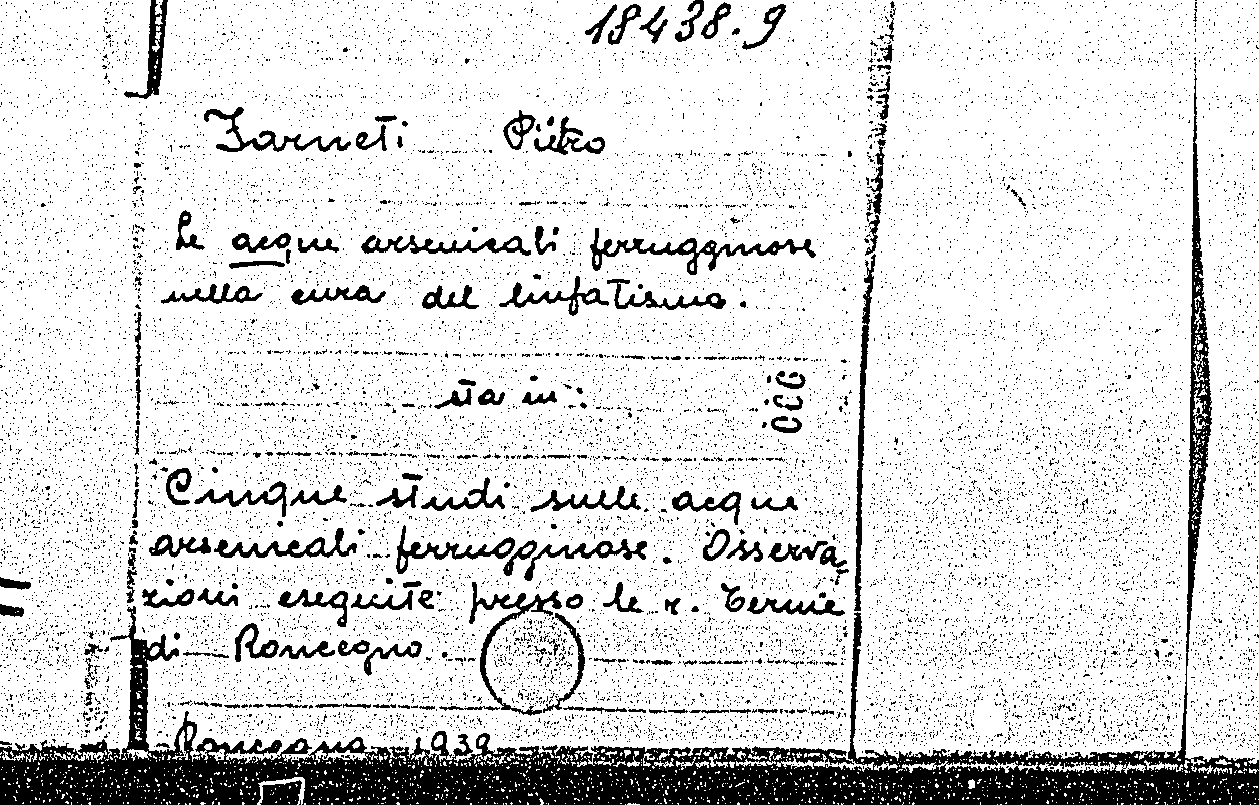 18438.9
Zarneti Pietro
Le acque arsenicali ferrugginose
nella cura del linfatismo.
sta in:
Cinque studi sulle acque
arsenicali ferrugginose. Osserva=
zioni eseguite presso le r. Terme
di Roncegno.
Roncegno 1939